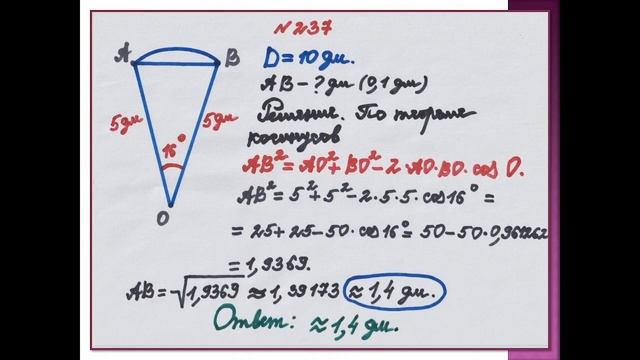 №237
A B D = 10 дм.
AB - ? дм (0,1 дм)
5дм 5дм Решение. По теореме
16° косинусов
AB² = AO² + BO² - 2·AO·BO·cos O.
O AB² = 5² + 5² - 2·5·5·cos 16° =
= 25 + 25 - 50·cos 16° = 50 - 50·0,961262
= 1,9369.
AB = √1,9369 ≈ 1,39173 ≈ 1,4 дм.
Ответ: ≈ 1,4 дм.